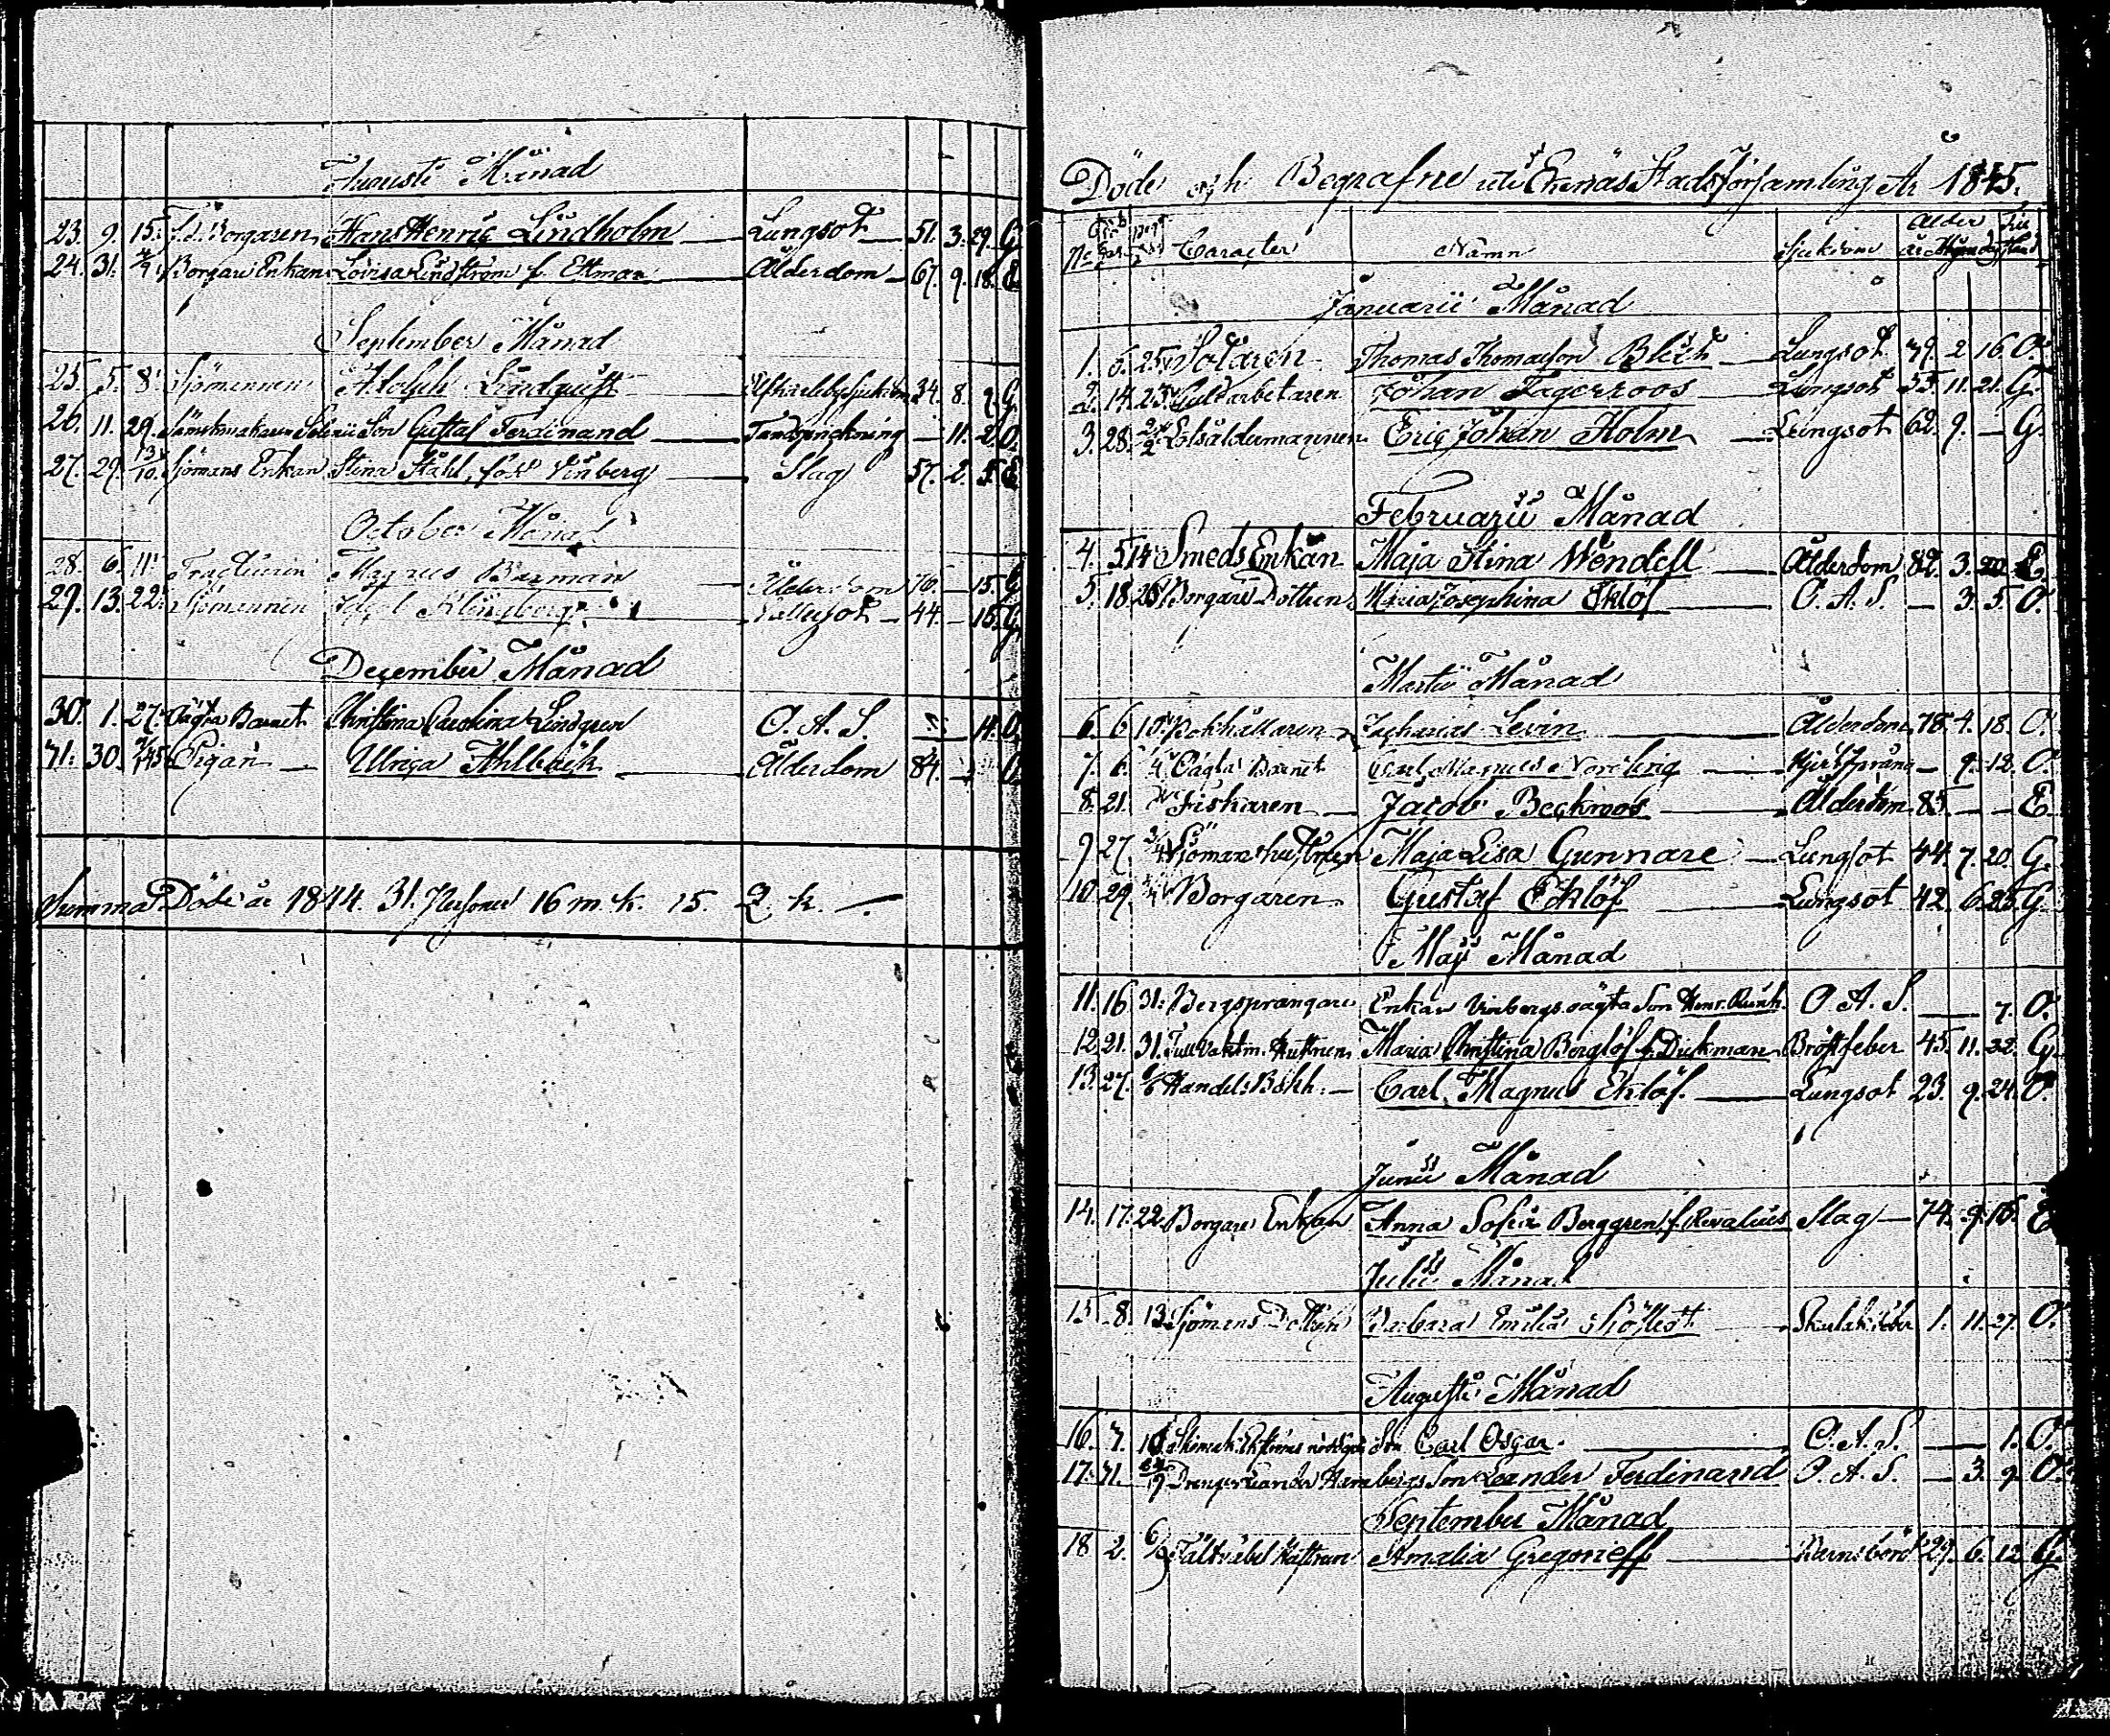 Augusti Månad
23. 9. 15. f.d. Borgaren Hans Henric Lindholm Lungsot 51. 3. 29. G.
24. 31. Borgare Enkan Lovisa Lindström f. Ettman Ålderdom 67. 9. 18. E
September Månad
25. 5. 8. Sjömannen Adolph Lindquist 34. 8. G.
26. 11. 29. Son Gustaf Ferdinand Tandsprickning — 11. 2. O.
27. 29. 13/10. Sjömans Enkan Stina Ståhl, född Vinberg Slag 57. 2. 5. E
October Månad
28. 6. 11. Magnus Barman Ålderdom 76. — 15. G
29. 13. 22. Sjömannen Klingberg 44. — 15. G
December Månad
30. 1. 27. Oägta Barnet Christina Carolina Lindgren O. A. S. — 14. O.
31. 30. Pigan Ulrica Ahlbäck Ålderdom 84.
Summa Döde år 1844. 31. Personer 16 m. k. 15. Q. k. —
Döde och Begrafne uti Ekenäs Stads församling År 1845.
No Caracter Namn Sjukdom Ålder
Januarii Månad
1. 6. 25. Thomas Thomasson Lungsot 79. 2. 16. O.
2. 14. 23. Guldarbetaren Johan Lagerroos Lungsot 55. 11. 21. G.
3. 28. 2/2 Eric Johan Holm Lungsot 62. 9. — G.
Februarii Månad
4. 5. 14. Smeds Enkan Maja Stina Wendell Ålderdom 82. 3. 20. E
5. 18. 26. Borgare Dottren Maria Josephina Eklöf O. A. S. — 3. 5. O.
Martii Månad
6. 6. 10. Bokhållaren Zacharias Levin Ålderdom 78. 4. 18. O.
7. 6. Oägta Barnet Carl Magnus Nordling — 9. 12. O.
8. 21. Fiskaren Jacob Beckroos Ålderdom 85. — — E
9. 27. Sjömans hustrun Maja Lisa Gunnare Lungsot 44. 7. 20. G.
10. 29. Borgaren Gustaf Eklöf Lungsot 42. 6. 25. G.
Maji Månad
11. 16. 31. Bergsprängare Enkan Vinbergs oägta Son O. A. S. — 7. O.
12. 21. 31. Hustrun Maria Christina Berglöf f. Dickman Bröstfeber 45. 11. 22. G.
13. 27. 1/6 Handels Bokh. — Carl Magnus Eklöf. Lungsot 23. 9. 24. O.
Junii Månad
14. 17. 22. Borgare Enkan Anna Sofia Berggren, f. Revalius Slag — 74. 9. 16. E
Julii Månad
15. 8. 13. Sjömans Dottren Barbara Emilia 1. 11. 27. O.
Augusti Månad
16. 7. 10. Son Carl Oscar. O. A. S. — 1. O.
17. 31. Son Leander Ferdinand O. A. S. — 3. 9. O.
September Månad
18. 2. 6/9 Fältväbel Hustrun Amalia Gregorieff Barnsbörd 29. 6. 12. G.